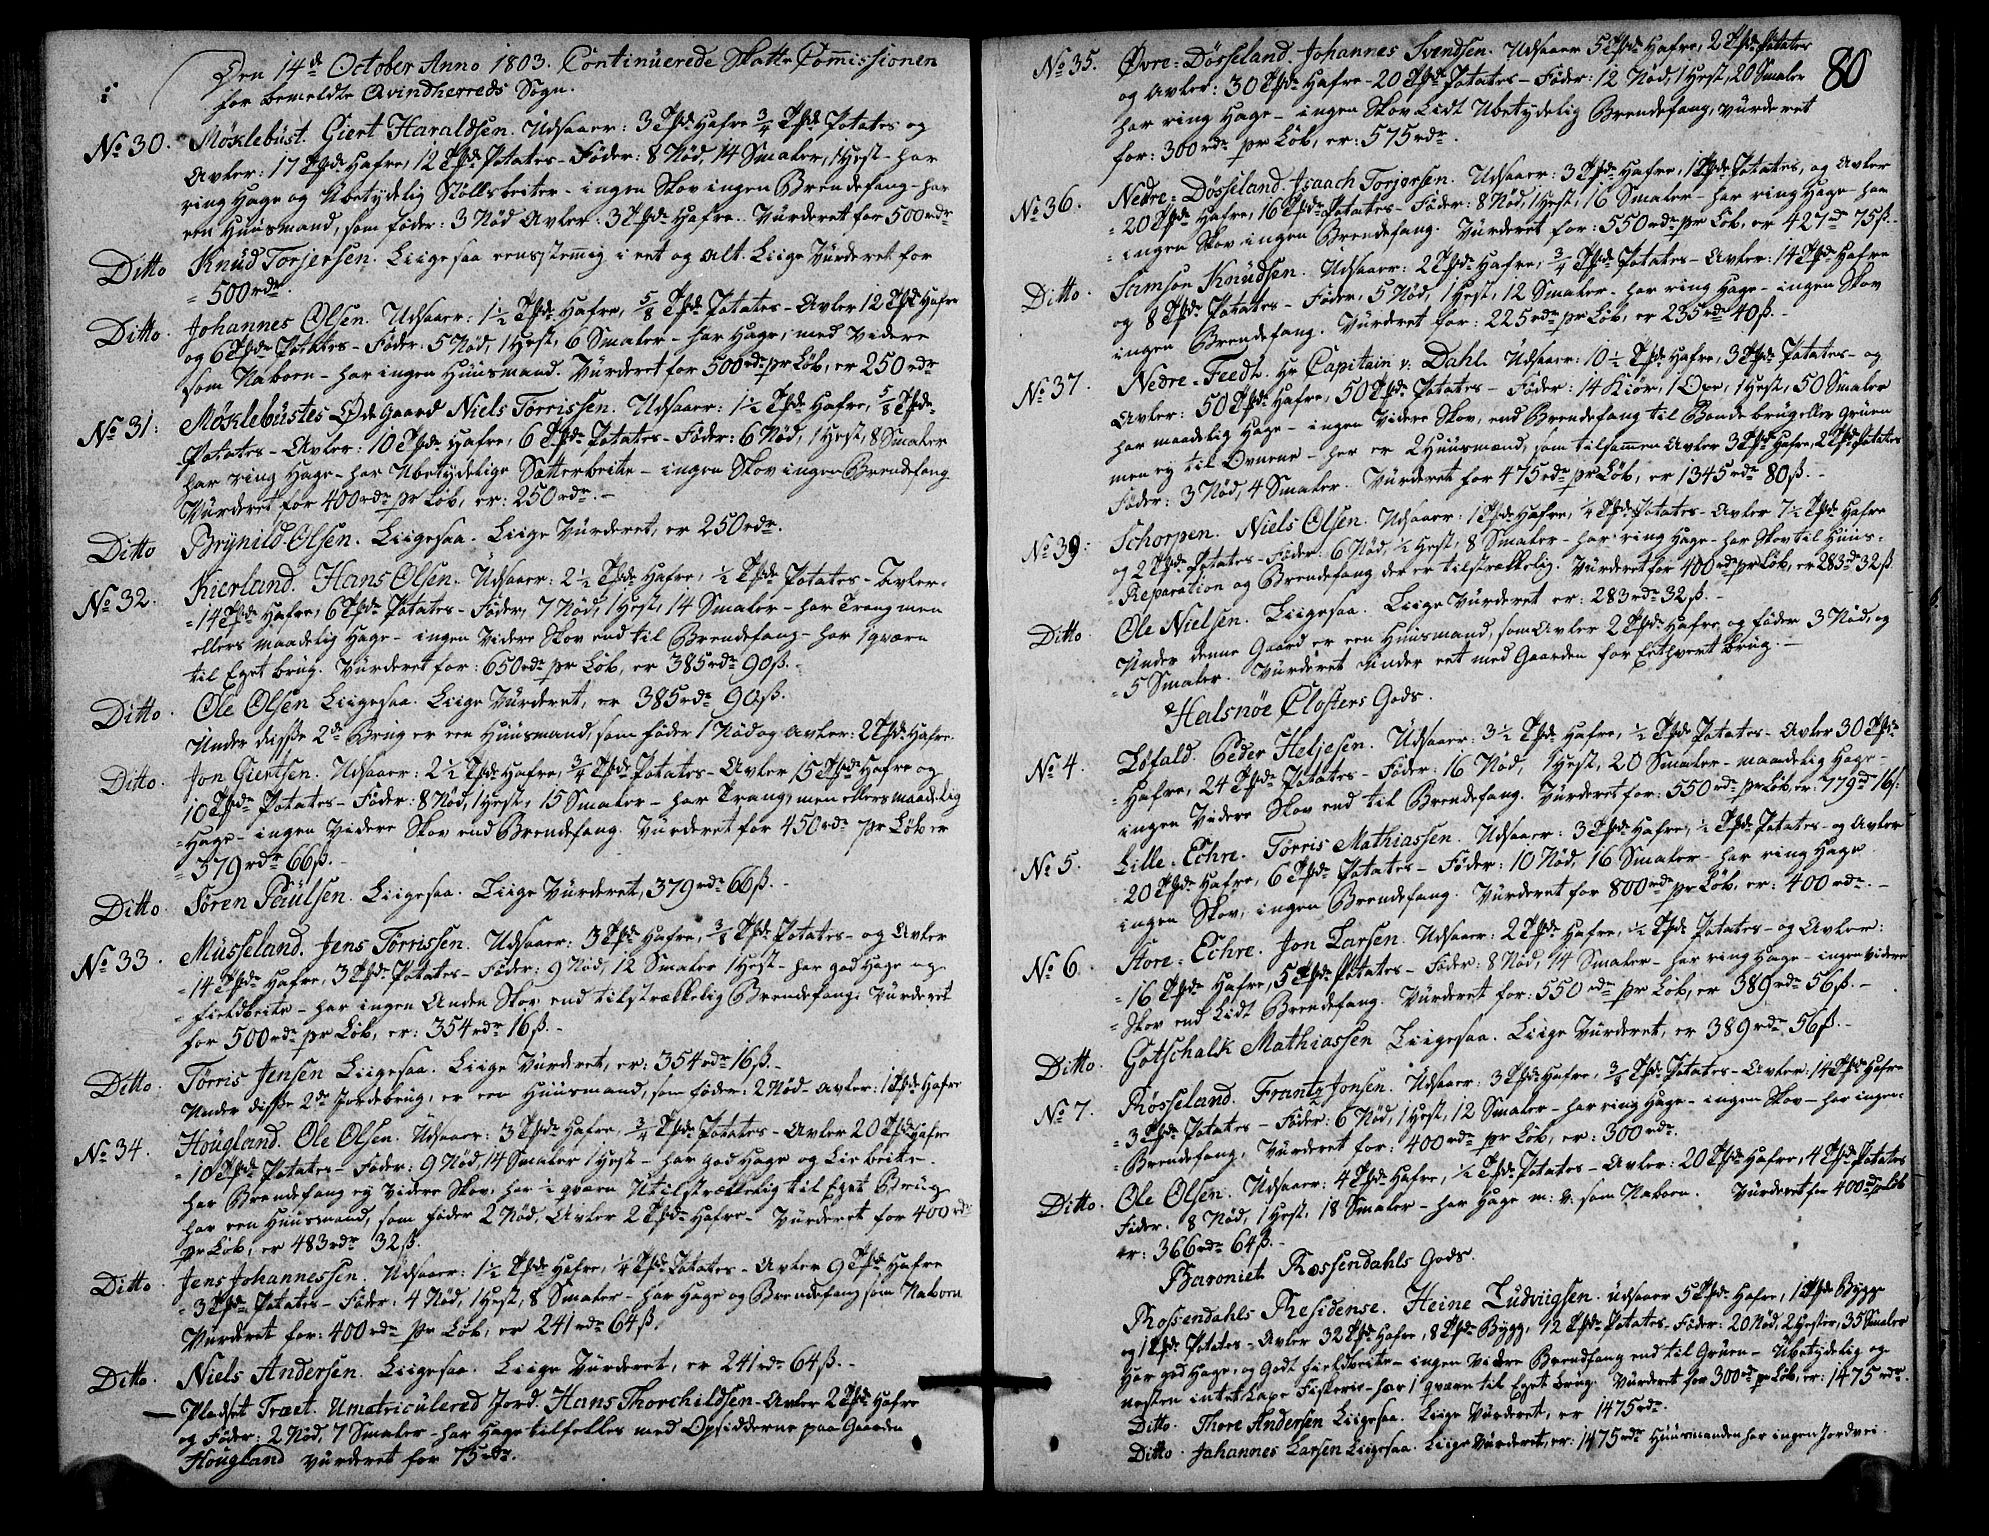 Den 14de October Anno 1803. Continuerede Skatte Commissionen
for bemeldte Qvindherreds Sogn.
No 30. Møklebust. Giert Haraldsen. Udsaaer: 3 Tpde Hafre 3/4 Tpde Potates og
Avler: 17 Tpde Hafre, 12 Tpde Potates - Føder: 8 Nød, 14 Smaler, 1 Hest - har
ring Hage og Ubetydelig Støllsbeiter - ingen Skov ingen Brendefang - har
een Huusmand, som føder: 3 Nød Avler: 3 Tpde Hafre. Vurderet for 500 rdr
Ditto Knud Torjersen. Liigesaa eenstemig i eet og alt. Liige Vurderet for
500 rdr.
Ditto. Johannes Olsen. Udsaaer: 1 1/2 Tpde Hafre, 5/8 Tpde Potates - Avler 12 Tpde Hafre
og 6 Tpde Potates - Føder: 5 Nød, 1 Hest, 6 Smaler - har Hage, med Videre
som Naboen - har ingen Huusmand. Vurderet for 500 rdr pr Løb, er 250 rdr
No 31: Møklebustes Øde Gaard Niels Tørrissen. Udsaaer: 1 1/2 Tpde Hafre, 5/8 Tpde
Potates - Avler: 10 Tpde Hafre, 6 Tpde Potates - Føder: 6 Nød, 1 Hest, 8 Smaler
har ring Hage - har Ubetydelige Sætterbeite - ingen Skov ingen Brendefang
Vurderet for 400 rdr pr Løb, er: 250 rdr. -
Ditto Brynild Olsen. Liigesaa. Liige Vurderet, er 250 rdr.
No 32. Kierland. Hans Olsen. Udsaaer: 2 1/2 Tpde Hafre, 1/2 Tpde Potates - Avler
14 Tpde Hafre, 6 Tpde Potates - Føder, 7 Nød, 1 Hest, 14 Smaler - har Trang men
ellers maadelig Hage - ingen Videre Skov end til Brendefang - har 1 qværn
til Eget brug. Vurderet for: 650 rdr pr Løb, er 385 rdr 90 ß. -
Ditto. Ole Olsen Liigesaa. Liige Vurderet, er 385 rdr 90 ß.
Under disse 2de Brug er een Huusmand, som føder 1 Nød og Avler: 2 Tpde Hafre.
Ditto. Jon Giertsen. Udsaaer: 2 1/2 Tpde Hafre, 3/4 Tpde Potates - Avler 15 Tpde Hafre og
10 Tpde Potates - Føder: 8 Nød, 1 Hest, 15 Smaler - har Trang, men ellers maadelig
Hage - ingen Videre Skov end Brendefang. Vurderet for 450 rdr pr Løb er
379 rdr 66 ß. -
Ditto Søren Paulsen. Liigesaa. Liige Vurderet, 379 rdr 66 ß. -
No 33. Musseland. Jens Tørrissen. Udsaaer: 3 Tpde Hafre, 3/8 Tpde Potates - og Avler
14 Tpde Hafre, 3 Tpde Potates - Føder: 9 Nød, 12 Smaler 1 Hest - har god Hage og
fieldbeite - har ingen Anden Skov end tilstrækkelig Brendefang. Vurderet
for 500 rdr pr Løb, er: 354 rdr 16 ß. -
Ditto. Tørris Jensen Liigesaa. Liige Vurderet, er: 354 rdr 16 ß. -
Under disse 2de Jordebrug, er een Huusmand, som føder: 2 Nød - Avler: 1 Tpde Hafre
No 34. Hougland. Ole Olsen. Udsaaer: 3 Tpde Hafre, 3/4 Tpde Potates - Avler 20 Tpde Hafre
10 Tpde Potates - Føder: 9 Nød, 14 Smaler 1 Hest - har god Hage og Liebeite.
har Brendefang ey Videre Skov, har 1/2 qværn Utilstrækkelig til Eget Brug
har een Huusmand, som føder 2 Nød, Avler 2 Tpde Hafre - Vurderet for 400 rdr
pr Løb, er 483 rdr 32 ß.
Ditto. Jens Johannessen. Udsaaer: 1 1/2 Tpde Hafre, 1/4 Tpde Potates - Avler 9 Tpde Hafre
3 Tpde Potates - Føder: 4 Nød, 1 Hest, 8 Smaler - har Hage og Brendefang som Naboen
Vurderet for: 400 rdr pr Løb, er 241 rdr 64 ß.
Ditto. Niels Andersen. Liigesaa. Liige Vurderet, er 241 rdr 64 ß. -
Pladset Træet. Umatriculered Jord. Hans Thorchildsen - Avler 2 Tpde Hafre
og Føder: 2 Nød, 7 Smaler - har Hage tilfelles med Opsidderne paa Gaarden
Hougland vurderet for 75 rdr.
80
No 35. Øvre-Døsseland. Johannes Svendsen. Udsaaer 5 Tpde Hafre, 2 Tpde Potates
og Avler: 30 Tpde Hafre - 20 Tpde Potates - Føder: 12 Nød, 1 Hest, 20 Smaler
har ring Hage - ingen Skov Lidt Ubetydelig Brendefang, vurderet
for: 300 rdr pr Løb, er: 575 rdr.
No 36. Nedre-Døsseland. Isaach Torjersen. Udsaaer: 3 Tpde Hafre, 1 Tpde Potates, og Avler
20 Tpde Hafre, 16 Tpde Potates - Føder: 8 Nød, 1 Hest, 16 Smaler - har ring Hage - har
ingen Skov ingen Brendefang. Vurderet for: 550 rdr pr Løb, er 427 dr 75 ß. -
Ditto. Samson Knudsen. Udsaaer: 2 Tpde Hafre, 3/4 Tpde Potates - Avler: 14 Tpde Hafre
og 8 Tpde Potates - Føder, 5 Nød, 1 Hest, 12 Smaler - har ring Hage - ingen Skov
ingen Brendefang. Vurderet for: 225 rdr pr Løb, er 235 rdr 40 ß. -
No 37. Nedre-Feedt. Hr Capitain v. Dahl. Udsaaer: 10 1/2 Tpde Hafre, 3 Tpde Potates - og
Avler: 50 Tpde Hafre, 50 Tpde Potates - Føder: 14 Kiør, 1 Oxe, 1 Hest, 50 Smaler
har maadelig Hage - ingen Videre Skov, end Brendefang til Bondebrug eller Gruen
men ey til Ovnene - her er 2 Huusmænd, som tilsammen Avler 3 Tpde Hafre, 2 Tpde Potates
Føder: 3 Nød, 4 Smaler. Vurderet for 475 rdr pr Løb, er 1345 rdr 80 ß. -
No 39: Schorpen. Niels Olsen. Udsaaer: 1 Tpde Hafre, 1/4 Tpde Potates - Avler 7 1/2 Tpde Hafre
og 2 Tpde Potates - Føder: 6 Nød, 1/2 Hest, 8 Smaler - har ring Hage - har Skov til Huus-
Reparation og Brendefang der er tilstrækkelig. Vurderet for 400 rdr pr Løb, er 283 rdr 32 ß.
Ditto Ole Nielsen. Liigesaa. Liige Vurderet er: 283 rdr 32 ß. -
Under denne Gaard er een Huusmand, som Avler 2 Tpde Hafre, og føder 3 Nød, og
5 Smaler. Vurderet Under eet med Gaarden for Eethvert brug. -
Halsnøe Closters Gods.
No 4. Løfald. Peder Heljesen. Udsaaer: 3 1/2 Tpde Hafre, 1/2 Tpde Potates - Avler 30 Tpde
Hafre, 24 Tpde Potates - Føder: 16 Nød, 1 Hest, 20 Smaler - maadelig Hage -
ingen Videre Skov end til Brendefang. Vurderet for: 550 rdr pr Løb, er: 779 dr 16 ß.
No 5. Lille-Echre. Tørris Mathiassen. Udsaaer: 3 Tpde Hafre, 1/2 Tpde Potates - og Avler
20 Tpde Hafre, 6 Tpde Potates - Føder: 10 Nød, 16 Smaler - har ring Hage
ingen Skov, ingen Brendefang. Vurderet for 800 rdr pr Løb, er: 400 rdr. -
No 6. Store-Echre. Jon Larsen. Udsaaer: 2 Tpde Hafre, 1/2 Tpde Potates - og Avler:
16 Tpde Hafre, 5 Tpde Potates - Føder: 8 Nød, 14 Smaler - har ring Hage - ingen Videre
Skov end Lidt Brendefang. Vurderet for: 550 rdr pr Løb, er 389 rdr 56 ß. -
Ditto. Gotschalk Mathiassen Liigesaa. Liige Vurderet, er 389 rdr 56 ß. -
No 7. Røsseland. Frantz Jonsen. Udsaaer: 3 Tpde Hafre, 3/8 Tpde Potates - Avler: 14 Tpde Hafre
3 Tpde Potates - Føder: 6 Nød, 1 Hest, 12 Smaler - har ring Hage - ingen Skov - har ingen
Brendefang, Vurderet for: 400 rdr pr Løb, er: 300 rdr.
Ditto. Ole Olsen. Udsaaer: 4 Tpde Hafre, 1/2 Tpde Potates - Avler: 20 Tpde Hafre, 4 Tpde Potates
Føder. 8 Nød, 1 Hest, 18 Smaler - har Hage m: v: som Naboen. Vurderet for 400 rdr pr Løb
er: 366 rdr 64 ß. -
Baroniet Rossendahls Gods.
Rossendahls Residense. Heine Ludviigsen. udsaaer 5 Tpde Hafre, 1 Tpde Bygg
og 1 Tpde Potates - Avler 32 Tpde Hafre, 8 Tpde Bygg, 12 Tpde Potates - Føder: 20 Nød, 2 Hester, 35 Smaler
Har god Hage, og Godt fieldbeite - ingen Videre Brendfang end til Gruen - Ubetydelig og
næsten intet Laxe Fiskerie - har 1 qværn til Eget brug. Vurderet for 300 dr pr Løb, er: 1475 rdr.
Ditto. Thore Andersen Liigesaa. Liige Vurderet, er 1475 rdr.
Ditto. Johannes Larsen Liigesaa. Liige Vurderet, er: 1475 rdr Huusmanden har ingen Jordvei.